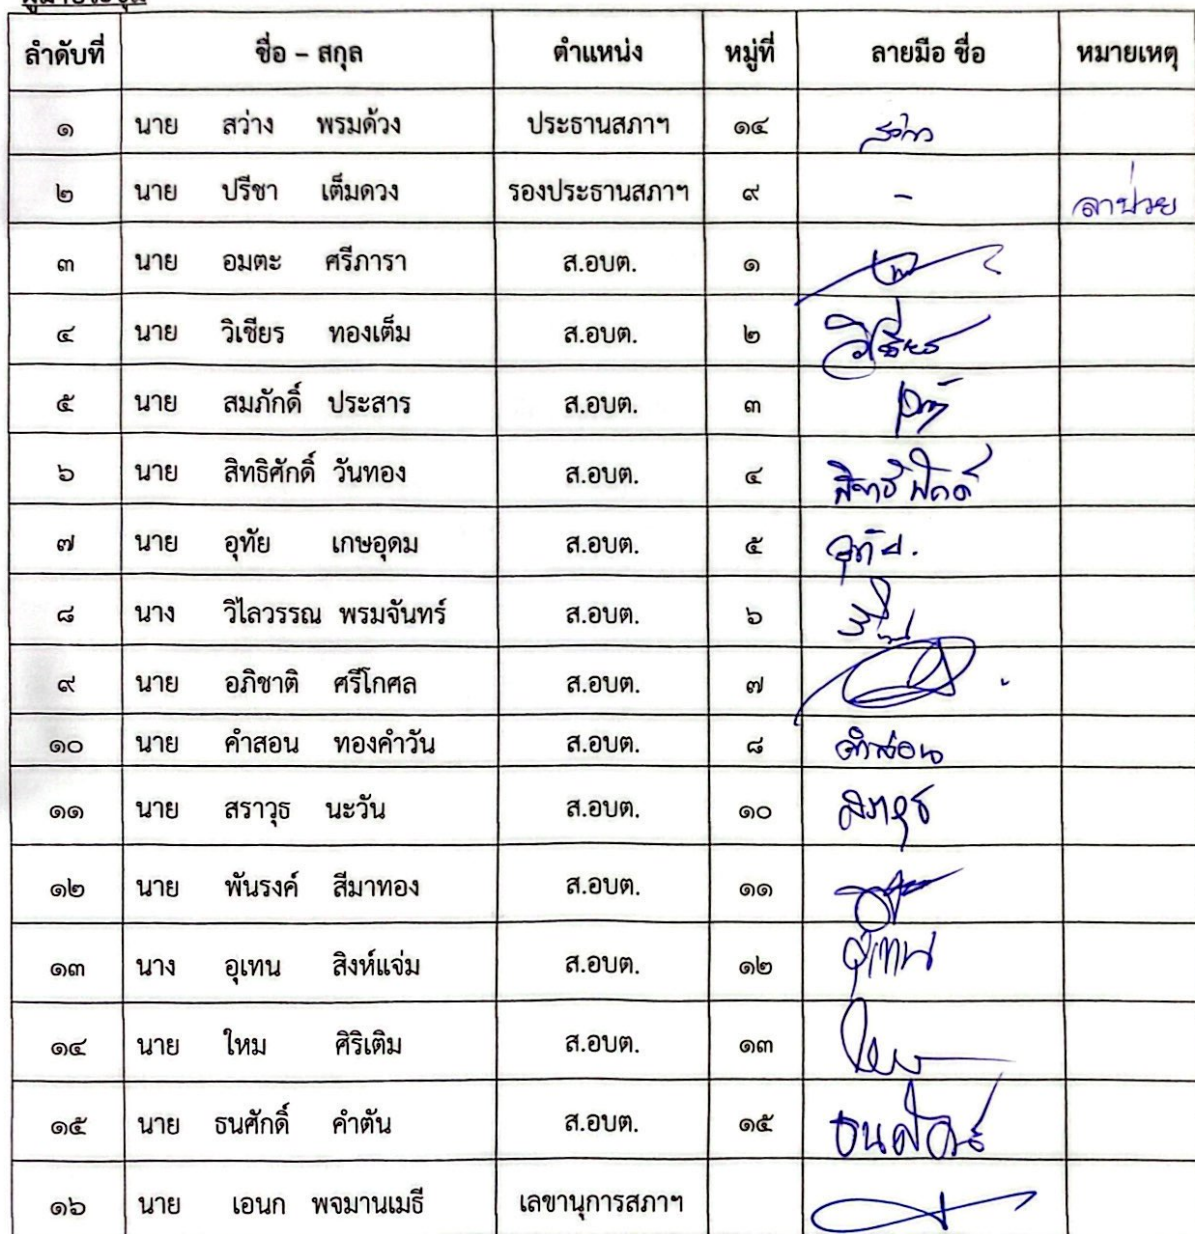 ผู้มาประชุม
ลำดับที่ ชื่อ – สกุล ตำแหน่ง หมู่ที่ ลายมือ ชื่อ หมายเหตุ
๑ นาย สว่าง พรมด้วง ประธานสภาฯ ๑๔ สว่าง
๒ นาย ปรีชา เต็มดวง รองประธานสภาฯ ๙ - ลาป่วย
๓ นาย อมตะ ศรีภารา ส.อบต. ๑
๔ นาย วิเชียร ทองเต็ม ส.อบต. ๒ วิเชียร
๕ นาย สมภักดิ์ ประสาร ส.อบต. ๓
๖ นาย สิทธิศักดิ์ วันทอง ส.อบต. ๔ สิทธิศักดิ์
๗ นาย อุทัย เกษอุดม ส.อบต. ๕ อุทัย.
๘ นาง วิไลวรรณ พรมจันทร์ ส.อบต. ๖
๙ นาย อภิชาติ ศรีโกศล ส.อบต. ๗
๑๐ นาย คำสอน ทองคำวัน ส.อบต. ๘ คำสอน
๑๑ นาย สราวุธ นะวัน ส.อบต. ๑๐ สราวุธ
๑๒ นาย พันรงค์ สีมาทอง ส.อบต. ๑๑
๑๓ นาง อุเทน สิงห์แจ่ม ส.อบต. ๑๒ อุเทน
๑๔ นาย ใหม ศิริเติม ส.อบต. ๑๓
๑๕ นาย ธนศักดิ์ คำตัน ส.อบต. ๑๕ ธนศักดิ์
๑๖ นาย เอนก พจมานเมธี เลขานุการสภาฯ